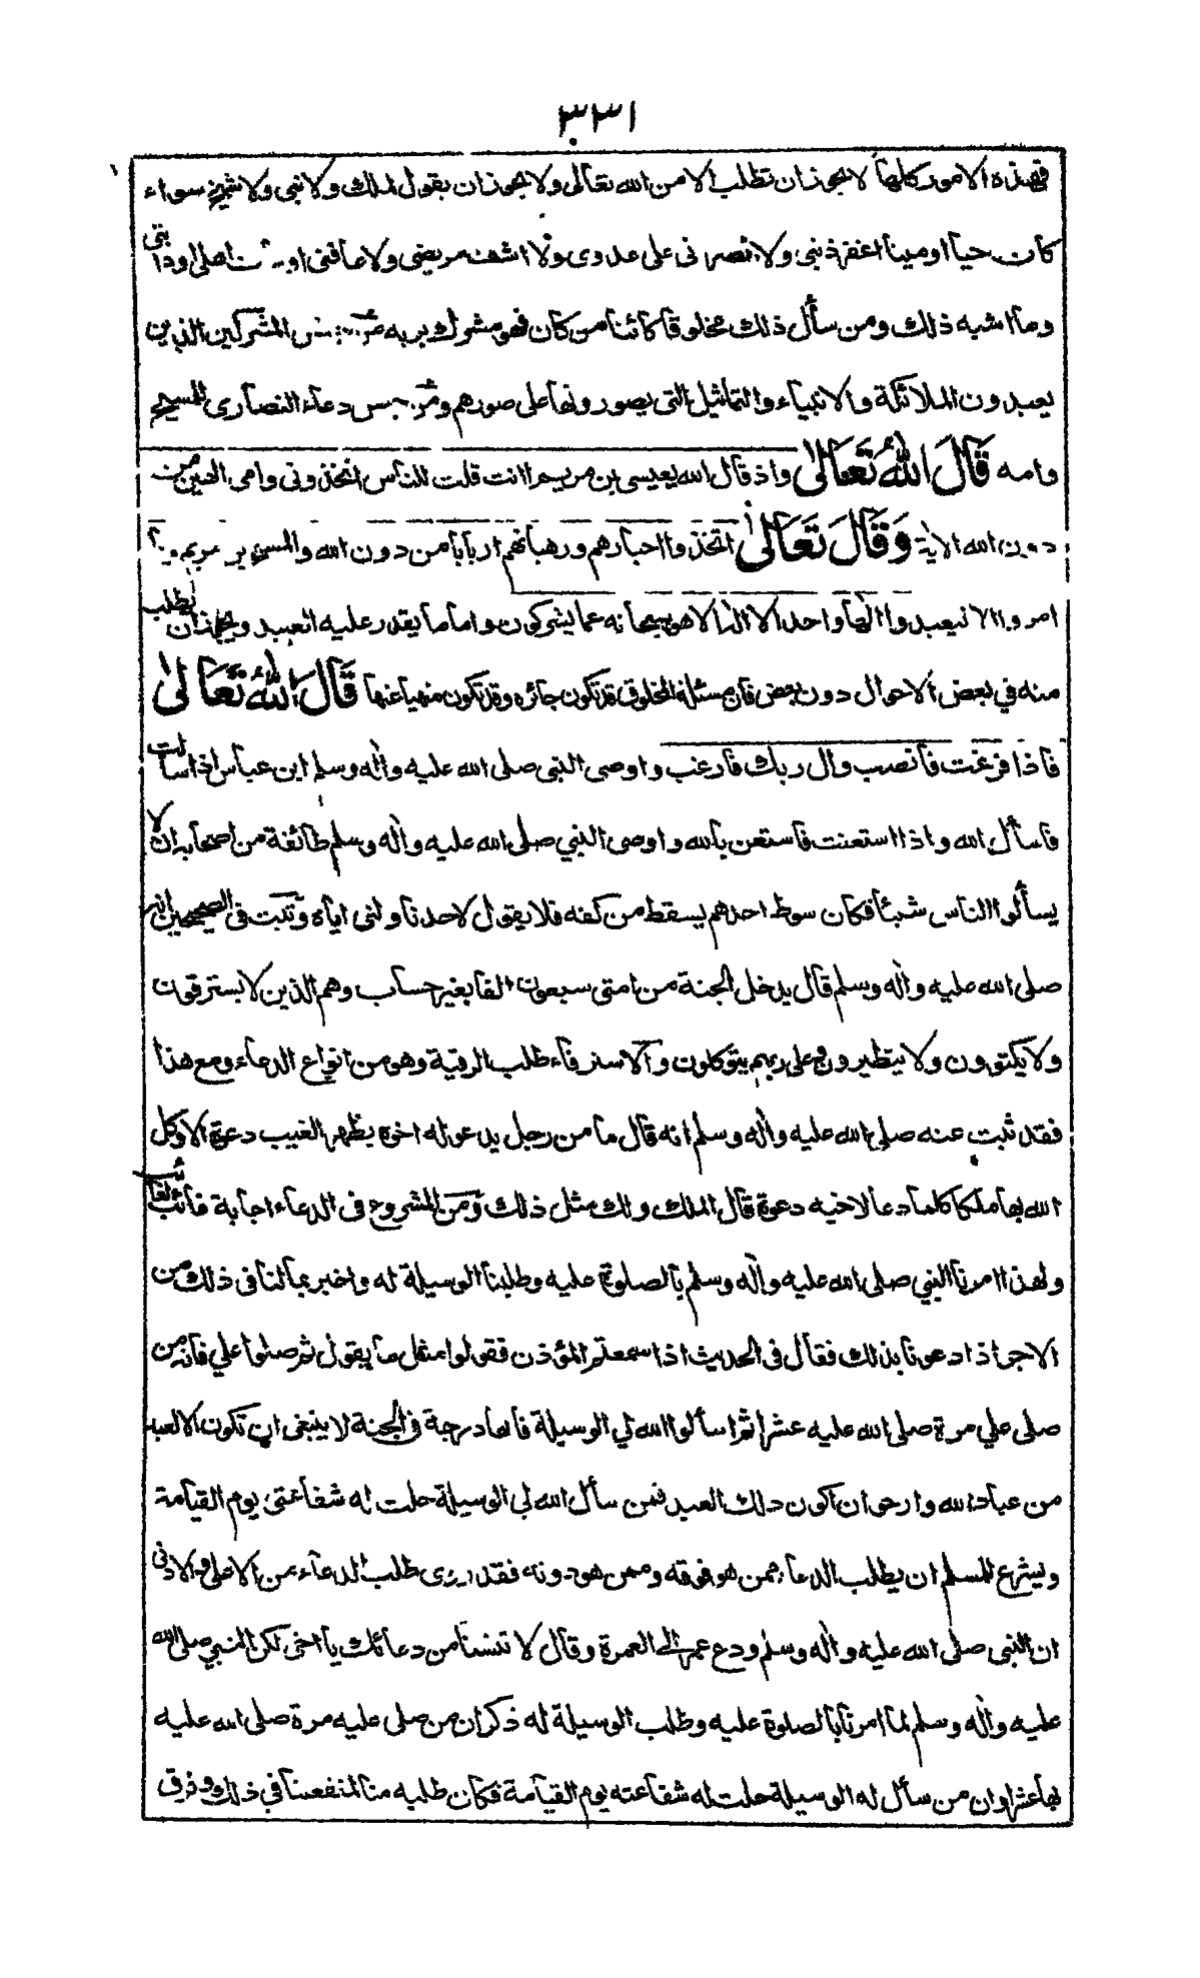 ٣٣١
فهذه الامور كلها لا يجوز ان تطلب الا من الله تعالى ولا يجوز ان يقول لملك ولا نبى ولا شيخ سواء
كان حيا او ميتا اغفر ذنبى ولا انصرنى على عدوى ولا اشف مريضى ولا عافنى او اهلى او دابتى
وما اشبه ذلك ومن سأل ذلك مخلوقا كائنا من كان فهو مشرك بربه من جنس المشركين الذين
يعبدون الملائكة والانبياء والتماثيل التى يصورونها على صورهم ومن جنس دعاء النصارى للمسيح
وامه قَالَ اللهُ تَعَالىٰ واذ قال الله يعيسى بن مريم اانت قلت للناس اتخذونى وامى الهين من
دون الله الاية وَقَالَ تَعَالىٰ اتخذوا احبارهم ورهبانهم اربابا من دون الله والمسيح بن مريم وما
امروا الا ليعبدوا الها واحدا لا اله الا هو سبحانه عما يشركون واما ما يقدر عليه العبد ويجوز ان يطلب
منه في بعض الاحوال دون بعض فان مسئلة المخلوق قد تكون جائزه وقد تكون منهيا عنها قَالَ اللهُ تَعَالىٰ
فاذا فرغت فانصب والى ربك فارغب واوصى النبى صلى الله عليه واله وسلم ابن عباس اذا سألت
فاسأل الله واذا استعنت فاستعن بالله واوصى النبي صلى الله عليه واله وسلم طائفة من اصحابه ان لا
يسألوا الناس شيئا فكان سوط احدهم يسقط من كفه فلا يقول لاحد ناولنى اياه وثبت فى الصحيحين انه
صلى الله عليه واله وسلم قال يدخل الجنة من امتى سبعون الفا بغير حساب وهم الذين لا يسترقون
ولا يكتوون ولا يتطيرون وعلى ربهم يتوكلون والاسترقاء طلب الرقية وهو من انواع الدعاء ومع هذا
فقد ثبت عنه صلى الله عليه واله وسلم انه قال ما من رجل يدعو له اخوه بظهر الغيب دعوة الا وكل
الله بها ملكا كلما دعا لاخيه دعوة قال الملك ولك مثل ذلك ومن المشروع فى الدعاء اجابة غائب لغائب
ولهذا امرنا النبي صلى الله عليه واله وسلم بالصلوة عليه وطلبنا الوسيلة له واخبر بما لنا فى ذلك من
الاجر اذا دعونا بذلك فقال فى الحديث اذا سمعتم المؤذن فقولوا مثل ما يقول ثم صلوا علي فانه من
صلى علي مرة صلى الله عليه عشرا ثم اسألوا الله لي الوسيلة فانها درجة فى الجنة لا ينبغى ان تكون الا لعبد
من عباد الله وارجو ان اكون ذلك العبد فمن سأل الله لى الوسيلة حلت له شفاعتى يوم القيامة
ويشرع للمسلم ان يطلب الدعاء ممن هو فوقه وممن هو دونه فقد روى طلب الدعاء من الاعلى والادنى
ان النبى صلى الله عليه واله وسلم ودع عمر الى العمرة وقال لا تنسنا من دعائك يا اخى لكن النبي صلى الله
عليه واله وسلم لما امرنا بالصلوة عليه وطلب الوسيلة له ذكر ان من صلى عليه مرة صلى الله عليه
بها عشرا وان من سأل له الوسيلة حلت له شفاعته يوم القيامة فكان طلبه منا لمنفعتنا في ذلك وفرق